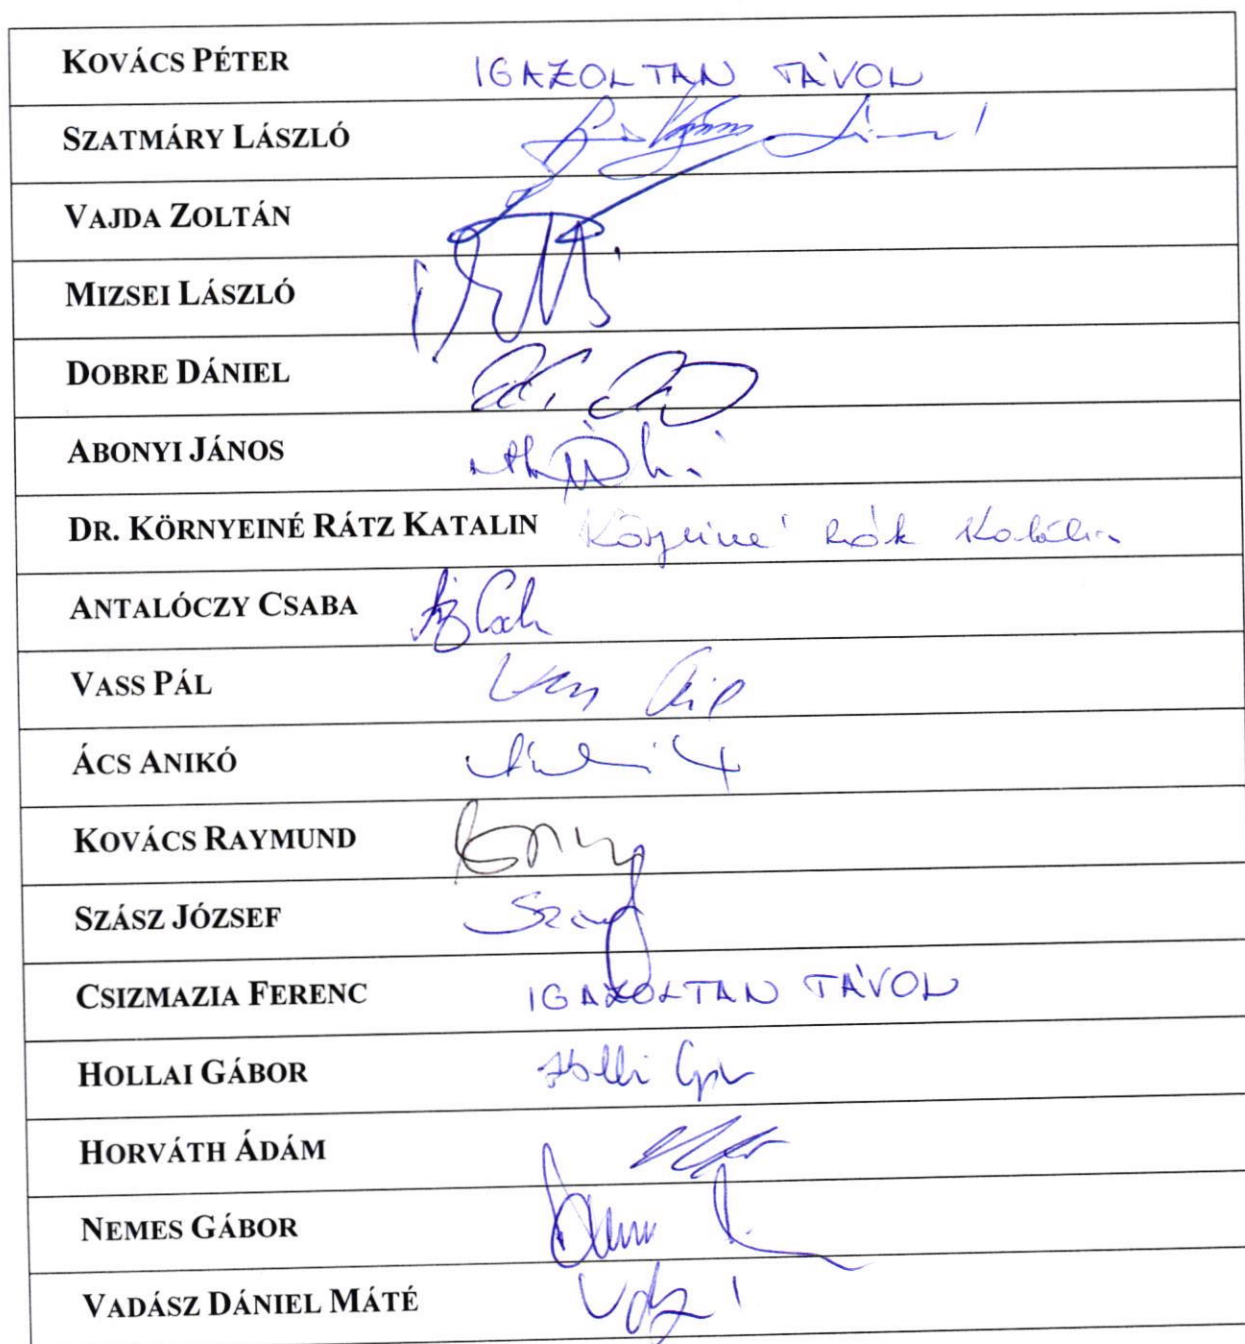 KOVÁCS PÉTER IGAZOLTAN TÁVOL
SZATMÁRY LÁSZLÓ
VAJDA ZOLTÁN
MIZSEI LÁSZLÓ
DOBRE DÁNIEL
ABONYI JÁNOS
DR. KÖRNYEINÉ RÁTZ KATALIN Környeiné Rátz Katalin
ANTALÓCZY CSABA
VASS PÁL
ÁCS ANIKÓ
KOVÁCS RAYMUND
SZÁSZ JÓZSEF
CSIZMAZIA FERENC IGAZOLTAN TÁVOL
HOLLAI GÁBOR
HORVÁTH ÁDÁM
NEMES GÁBOR
VADÁSZ DÁNIEL MÁTÉ